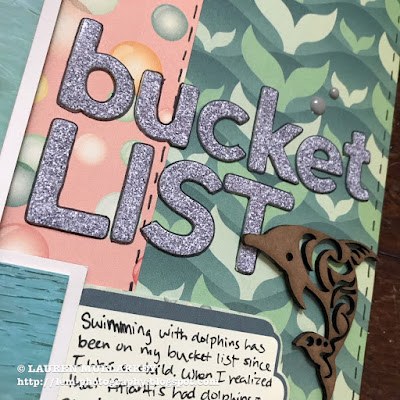 bucket
LIST
Swimming with dolphins has
been on my bucket list since
I was a child. When I realized
that Atlantis had dolphins
© LAUREN